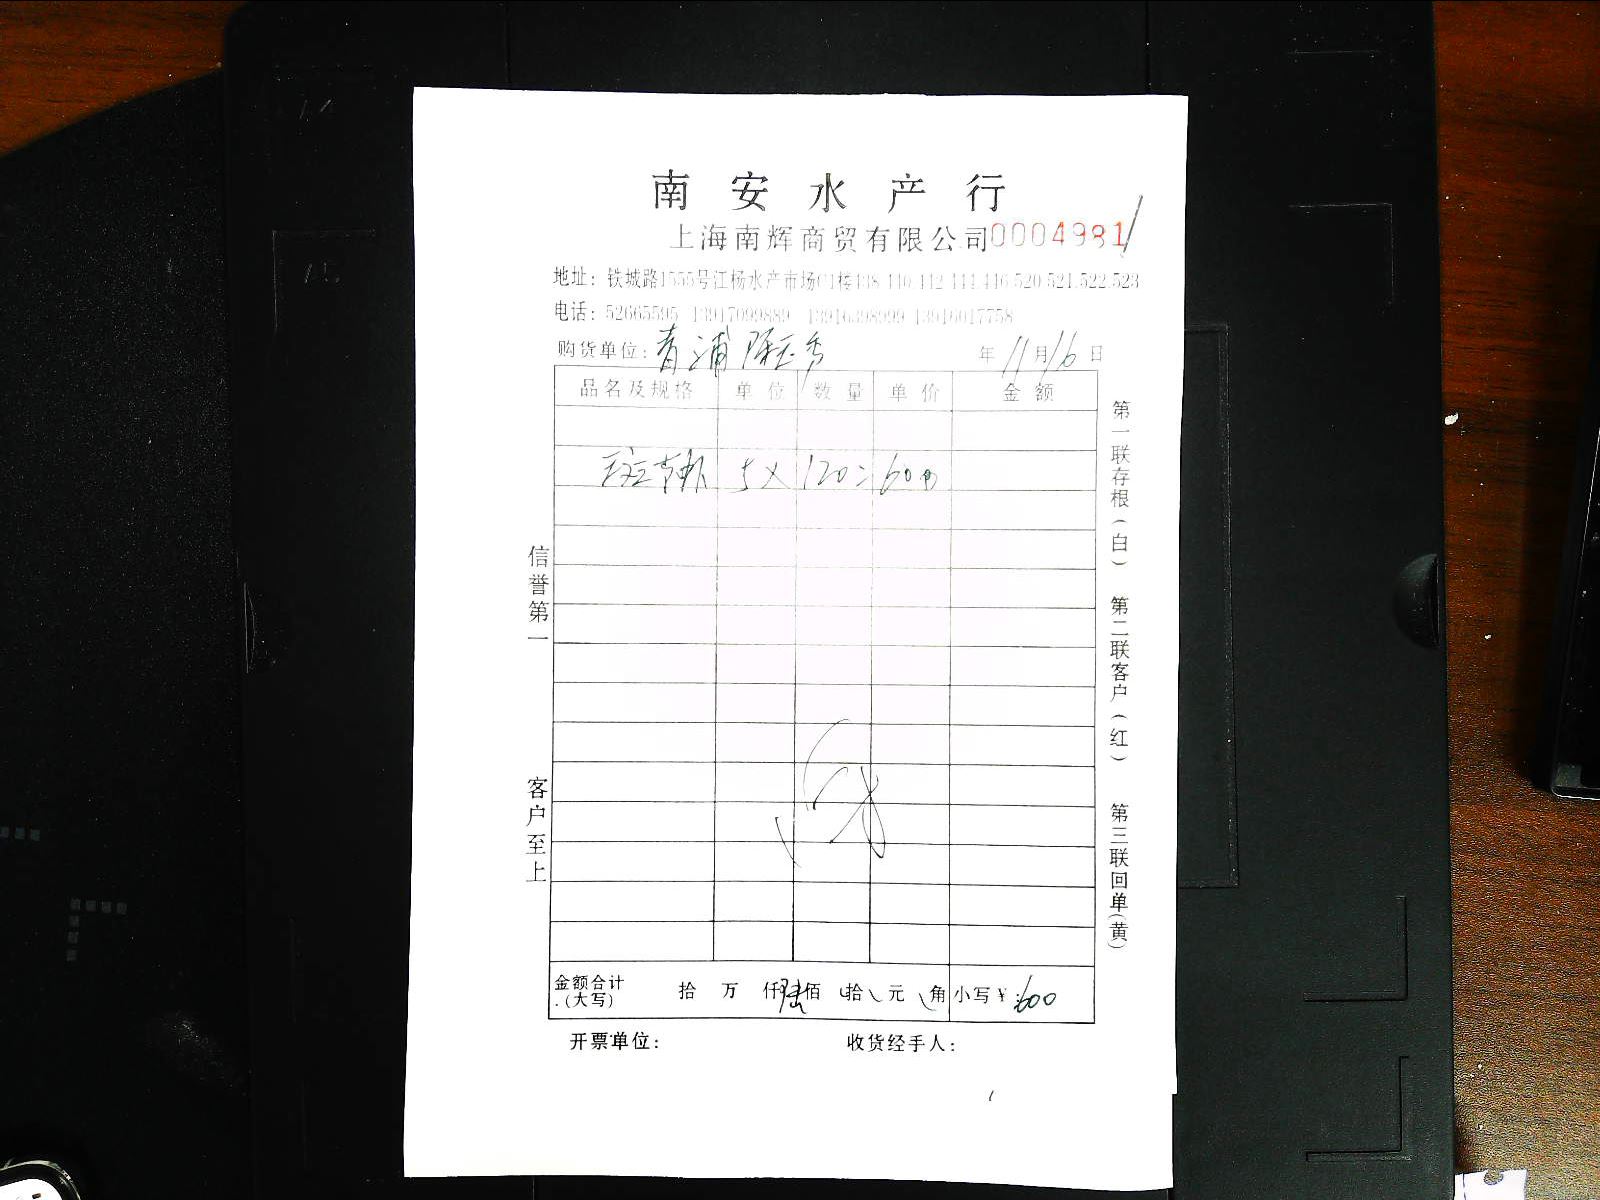 南安水产行
上海南辉商贸有限公司 0004981
地址：铁城路1555号江杨水产市场C1楼 520.521.522.523
电话：52665595 13917099889 13916398999 13916017758
购货单位：青浦 年11月16日
品名及规格 单位 数量 单价 金额
5 × 120 = 600
信誉第一
客户至上
第一联存根（白） 第二联客户（红） 第三联回单（黄）
金额合计（大写） 拾 万 仟 陆佰 拾 元 角 小写￥：600
开票单位： 收货经手人：